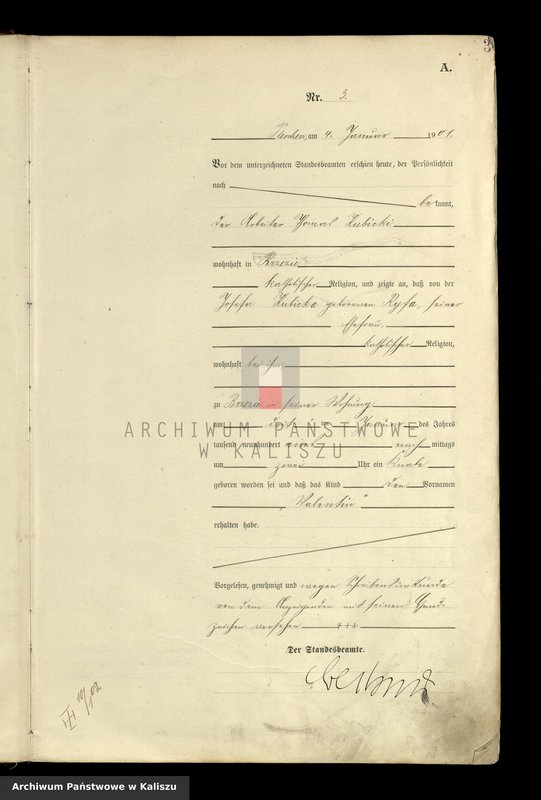 3
A.
Nr. 3.
am 4. Januar 1901.
Vor dem unterzeichneten Standesbeamten erschien heute, der Persönlichkeit
nach
bekannt,
der Arbeiter Thomas Kubicki
wohnhaft in Brzezie
katholischer Religion, und zeigte an, daß von der
Josefa Kubicka geborenen Rysa, seiner
Ehefrau,
katholischer Religion,
wohnhaft bei ihm,
zu Brzezie in seiner Wohnung
am des Jahres
tausend neunhundert nach mittags
um zwei Uhr ein Knabe
geboren worden sei und daß das Kind den Vornamen
„Valentin“
erhalten habe.
Vorgelesen, genehmigt und wegen Schreibensunkunde
von dem Anzeigenden mit seinem Hand-
zeichen versehen +++
Der Standesbeamte.
ARCHIWUM PAŃSTWOWE
W KALISZU
Archiwum Państwowe w Kaliszu